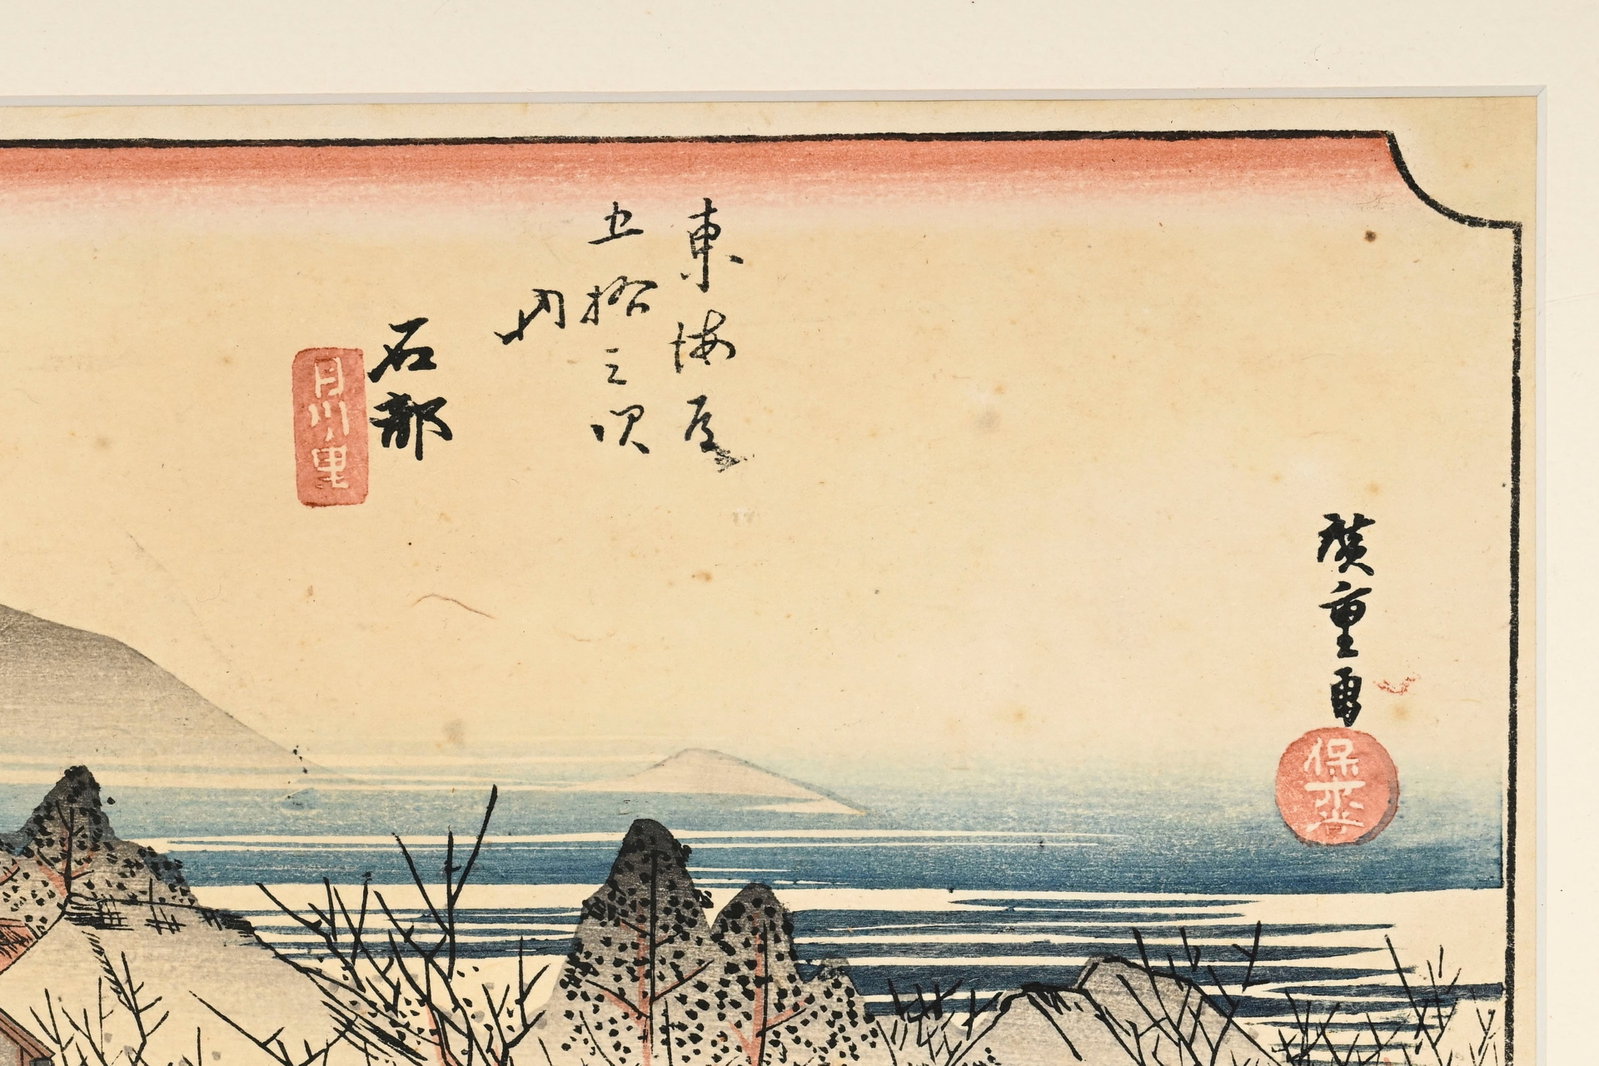 東海道
五拾三次
之内
石部
目川ノ里
廣重画
保永